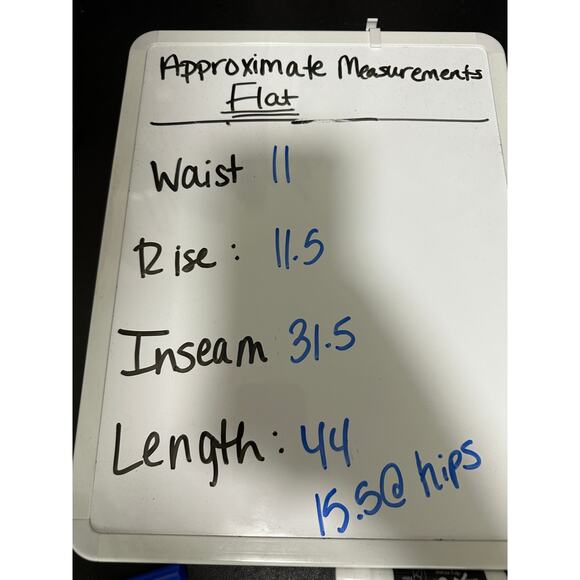 Approximate Measurements
Flat
Waist 11
Rise: 11.5
Inseam 31.5
Length: 44
15.5@ hips